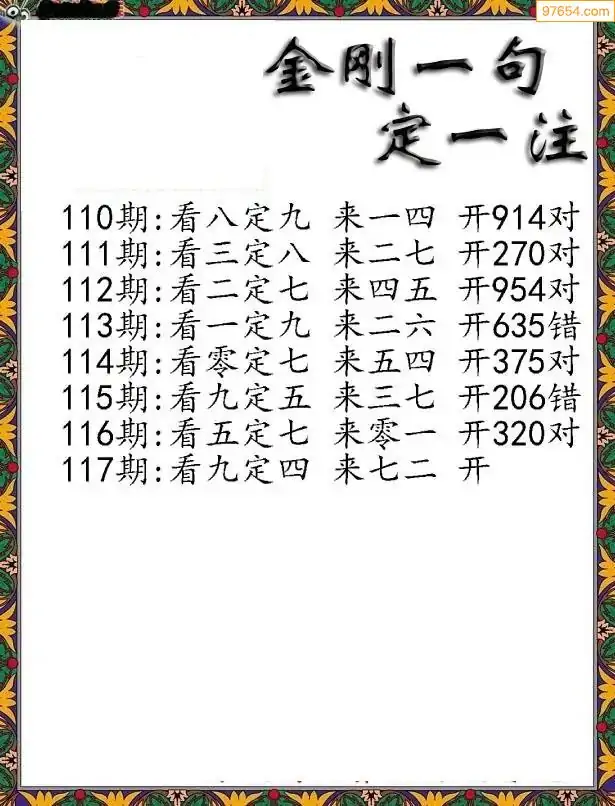 97654.com
金刚一句
定一注
110期:看八定九 来一四 开914对
111期:看三定八 来二七 开270对
112期:看二定七 来四五 开954对
113期:看一定九 来二六 开635错
114期:看零定七 来五四 开375对
115期:看九定五 来三七 开206错
116期:看五定七 来零一 开320对
117期:看九定四 来七二 开